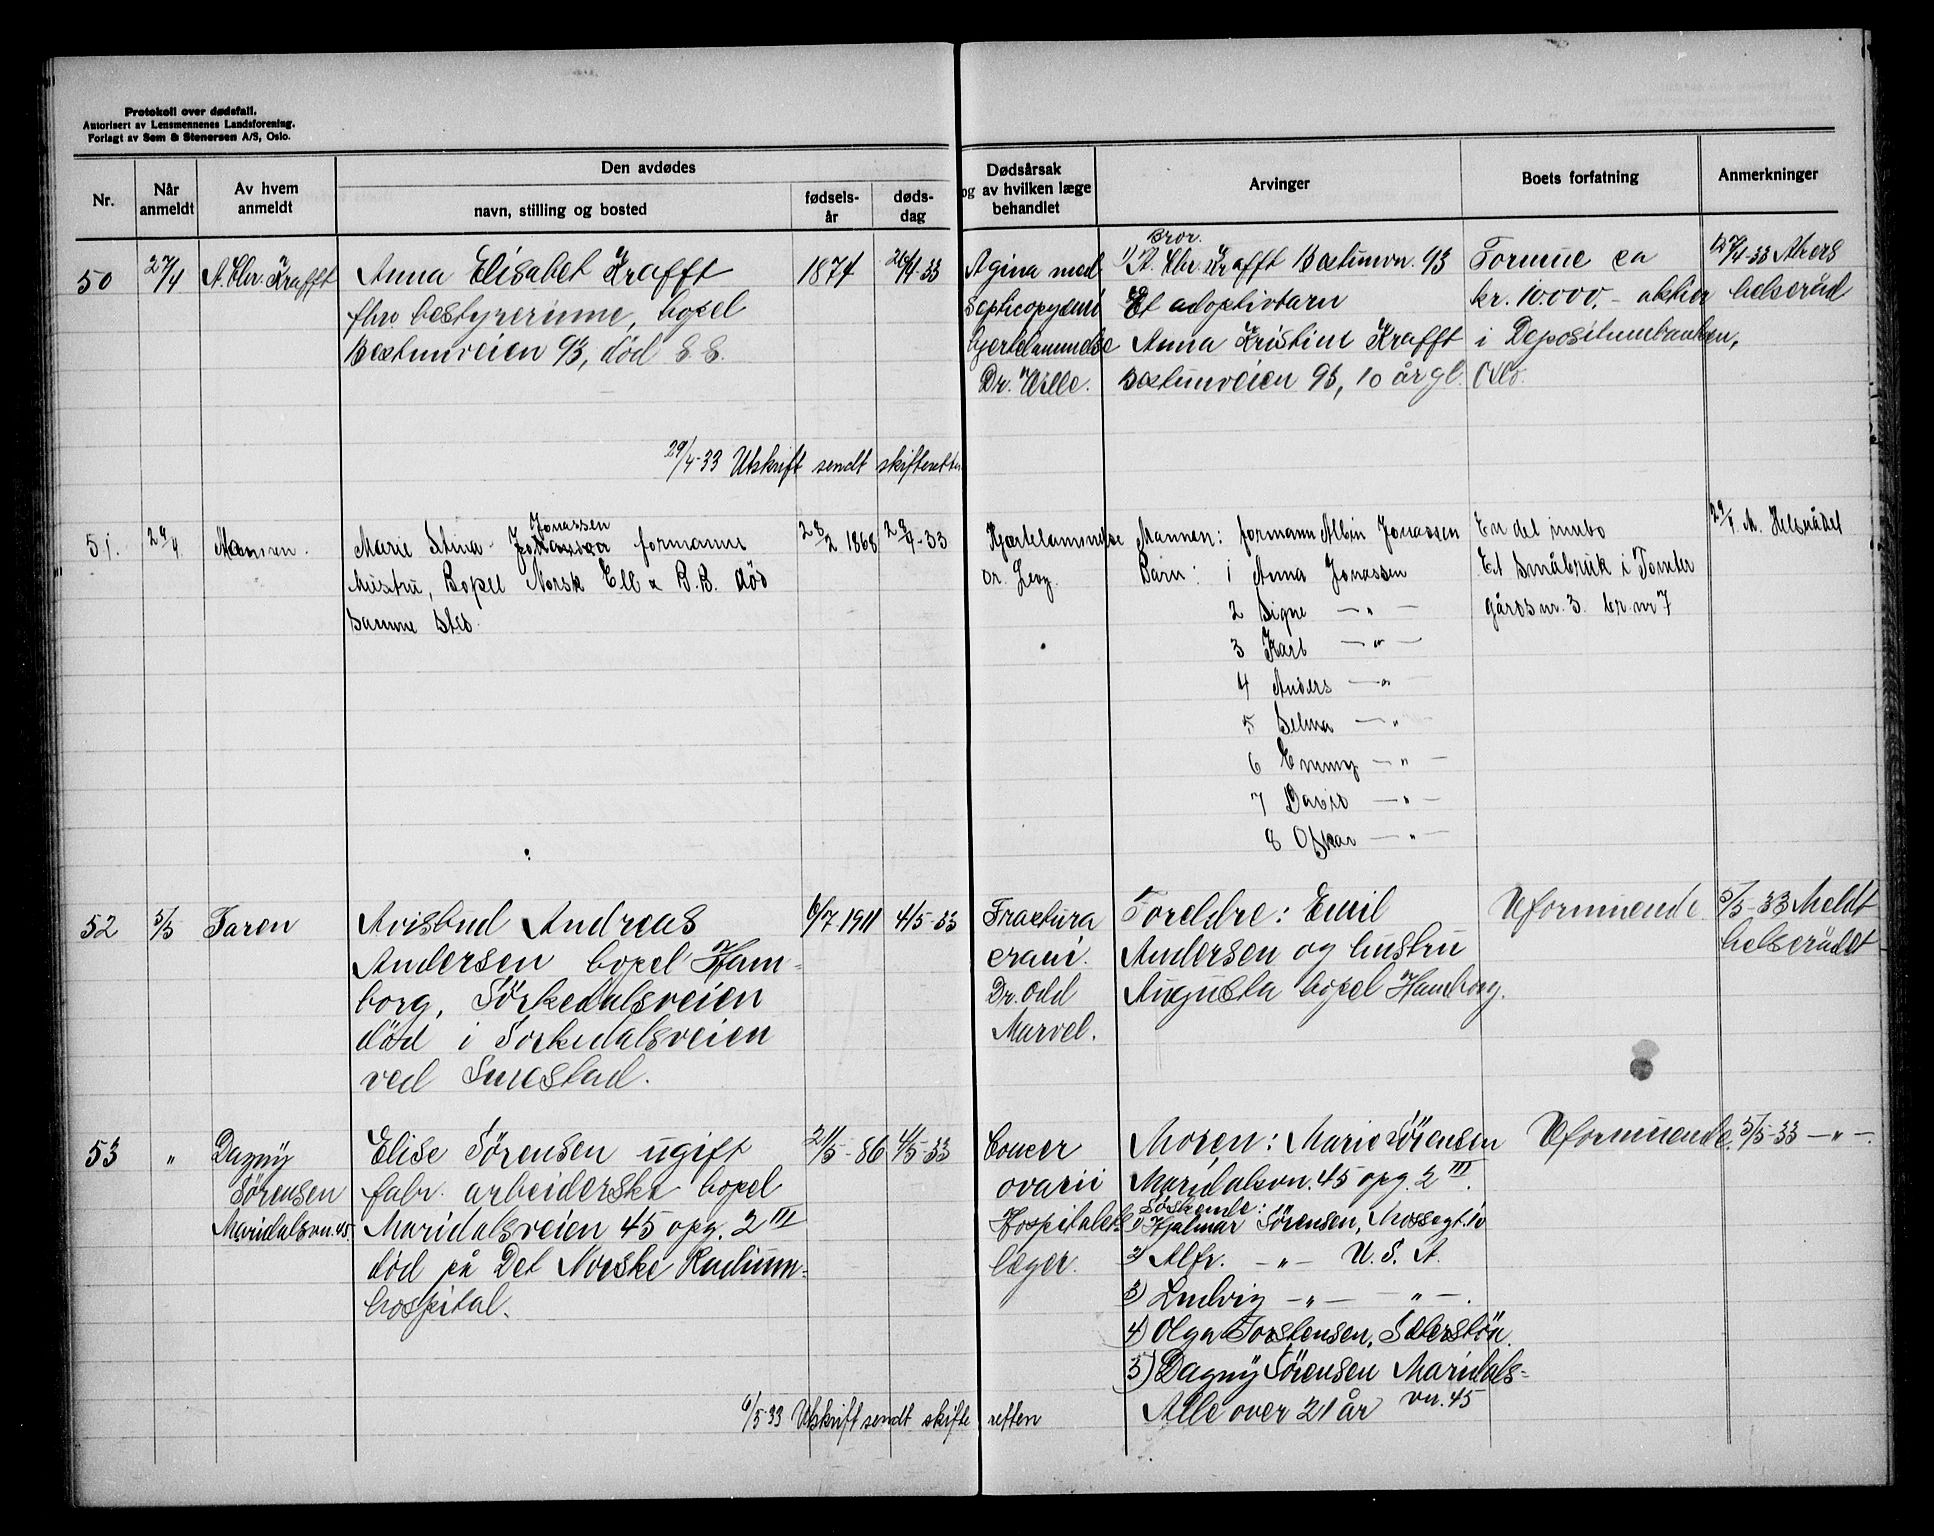 Protokoll over dødsfall.
Autorisert av Lensmennenes Landsforening.
Forlagt av Sem & Stenersen A/S, Oslo.
Nr.
Når anmeldt
Av hvem anmeldt
Den avdødes
navn, stilling og bosted
fødselsår
dødsdag
Dødsårsak og av hvilken læge behandlet
Arvinger
Boets forfatning
Anmerkninger
50
27/4
A. Chr. Krafft
Anna Elisabet Krafft
fhv bestyrerinne, bopel
Bestumveien 93, død s. s.
1874
26/4-33
Agina med
Septicopyemi
hjertelammelse
Dr. Wille.
Bror.
1) A. Chr. Krafft Bestumvn. 93
Et adoptivbarn
Anna Kristine Krafft
Bestumveien 93, 10 år gl.
Formue ca
kr. 10.000,- aktier
i Depositumbanken,
Oslo.
27/4-33 Akers
helseråd
29/4-33 Utskrift sendt skifteretten
51.
29/4
Mannen.
Jonassen
Marie Stina formanns
Hustru, Bopel Norsk El & B.B. død
Samme sted.
28/2 1868
28/4-33
Hjertelammelse
Dr.
Mannen: formann Albin Jonassen
Barn: 1 Anna Jonassen
2 Signe — " —
3 Karl — " —
4 Anders — " —
5 Selma — " —
6 Emmy — " —
7 David — " —
8 Oskar — " —
En del innbo
Et Småbruk i Tomter
gårds nr. 3. br. nr 7
29/4 M. Helserådet
52
5/5
Faren
Avisbud Andreas
Andersen bopel Ham-
borg, Sörkedalsveien
död i Sorkedalsveien
ved Smestad.
6/7 1911
4/5-33
Fractura
crani.
Dr. Odd
Marvel.
Foreldre: Emil
Andersen og hustru
Augusta bopel Hamborg.
Uformuende
5/5-33 Meldt
helserådet
53
"
Dagny
Sörensen
Maridalsvn. 45.
Elise Sörensen ugift
fabr. arbeiderske bopel
Maridalsveien 45 opg. 2 III
död på Det Norske Radium-
hospital.
21/5-86
4/5-33
Cancer
ovarii
Hospitalets
læger.
Moren: Marie Sörensen
Maridalsvn. 45 opg. 2 III.
Søskende:
1) Hjalmar Sörensen, Mossegt. 10
2) Alfr. — " — U. S. A.
3) Ludvig — " — " —.
4) Olga Torstensen,
5) Dagny Sörensen Maridals-
vn. 45
Alle over 21 år
Uformuende.
5/5-33 — " —.
6/5-33 Utskrift sendt skifteretten